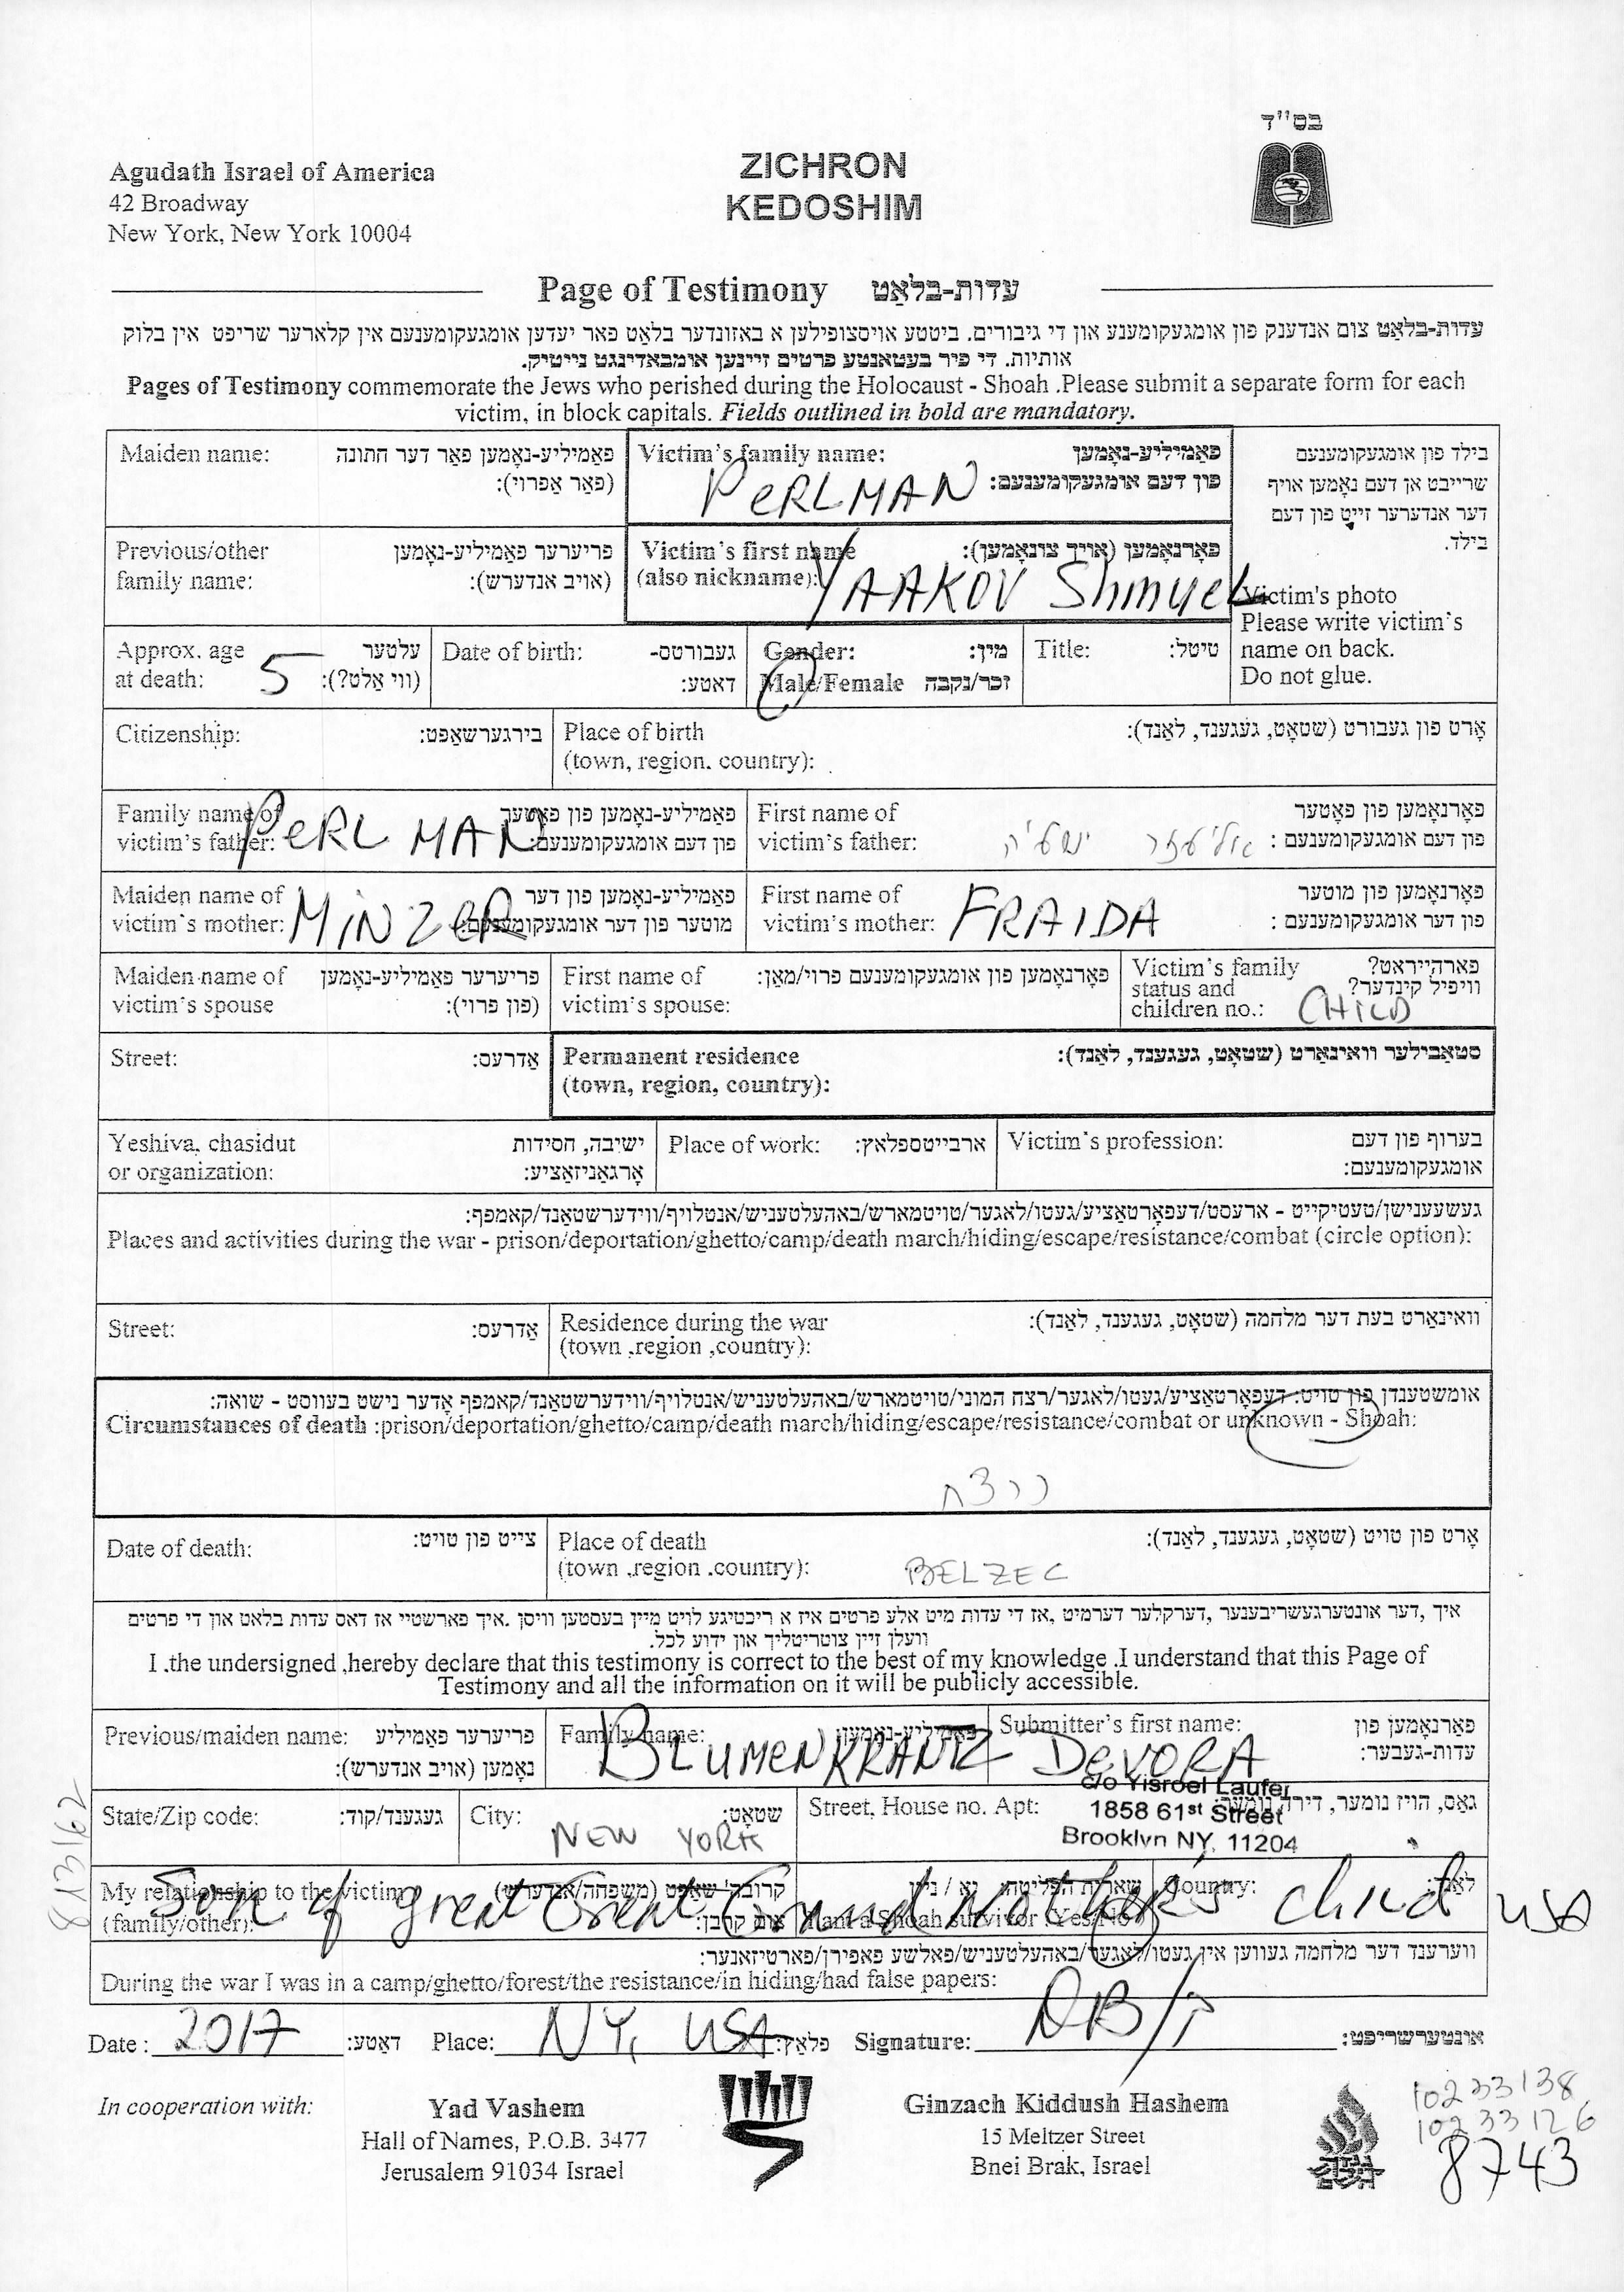 בס"ד
Agudath Israel of America
42 Broadway
New York, New York 10004
ZICHRON
KEDOSHIM
Page of Testimony עדות-בלאַט
עדות-בלאַט צום אנדענק פון אומגעקומענע און די גיבורים. ביטטע אויסצופילען א באזונדער בלאַט פאר יעדען אומגעקומענעם אין קלארער שריפט אין בלוק
אותיות. די פיר בעטאנטע פרטים זיינען אומבאדינגט נייטיק.
Pages of Testimony commemorate the Jews who perished during the Holocaust - Shoah .Please submit a separate form for each
victim, in block capitals. Fields outlined in bold are mandatory.
Maiden name: פאַמיליע-נאָמען פאַר דער חתונה
(פאַר אַפרוי):
Victim's family name: פאַמיליע-נאָמען
פון דעם אומגעקומענעם:
PERLMAN
בילד פון אומגעקומענעם
שרייבט אן דעם נאָמען אויף
דער אנדערער זייט פון דעם
בילד.
Previous/other פריערער פאַמיליע-נאָמען
family name: (אויב אנדערש):
Victim's first name פאָרנאָמען (אויך צונאָמען):
(also nickname):
YAAKOV Shmuel
Victim's photo
Please write victim's
name on back.
Do not glue.
Approx. age עלטער
at death: 5 (ווי אַלט?):
Date of birth: געבורטס-
דאטע:
Gender: מין:
Male/Female זכר/נקבה
Title: טיטל:
Citizenship: בירגערשאַפט:
Place of birth אָרט פון געבורט (שטאָט, געגענד, לאַנד):
(town, region. country):
Family name of פאַמיליע-נאָמען פון פאָטער
victim's father: פון דעם אומגעקומענעם:
PERLMAN
First name of פאָרנאָמען פון פאָטער
victim's father: פון דעם אומגעקומענעם :
אליעזר ישעיה
Maiden name of פאַמיליע-נאָמען פון דער
victim's mother: מוטער פון דער אומגעקומענעם:
MINZER
First name of פאָרנאָמען פון מוטער
victim's mother: פון דער אומגעקומענעם :
FRAIDA
Maiden name of פריערער פאַמיליע-נאָמען
victim's spouse (פון פרוי):
First name of פאָרנאָמען פון אומגעקומענעם פרוי/מאַן:
victim's spouse:
Victim's family פארהייראט?
status and וויפיל קינדער?
children no.: CHILD
Street: אַדרעס:
Permanent residence סטאַבילער וווינאַרט (שטאָט, געגענד, לאַנד):
(town, region, country):
Yeshiva, chasidut ישיבה, חסידות
or organization: אָרגאַניזאַציע:
Place of work: ארבייטספלאץ:
Victim's profession: בערוף פון דעם
אומגעקומענעם:
געשעענישן/טעטיקייט - ארעסט/דעפאָרטאַציע/געטו/לאגער/טויטמארש/באהעלטעניש/אנטלויף/ווידערשטאַנד/קאמפף:
Places and activities during the war - prison/deportation/ghetto/camp/death march/hiding/escape/resistance/combat (circle option):
Street: אַדרעס:
Residence during the war וווינאַרט בעת דער מלחמה (שטאָט, געגענד, לאַנד):
(town ,region ,country):
אומשטענדן פון טויט: דעפאָרטאַציע/געטו/לאגער/רצח המוני/טויטמארש/באהעלטעניש/אנטלויף/ווידערשטאַנד/קאמפף אָדער נישט בעוווסט - שואה:
Circumstances of death :prison/deportation/ghetto/camp/death march/hiding/escape/resistance/combat or unknown - Shoah:
נרצח
Date of death: צייט פון טויט:
Place of death אָרט פון טויט (שטאָט, געגענד, לאַנד):
(town ,region .country): BELZEC
איך ,דער אונטערגעשריבענער ,דערקלער דערמיט ,אז די עדות מיט אלע פרטים איז א ריכטיגע לויט מיין בעסטען וויסן .איך פארשטיי אז דאס עדות בלאט און די פרטים
וועלן זיין צוטריטליך און ידוע לכל.
I .the undersigned ,hereby declare that this testimony is correct to the best of my knowledge .I understand that this Page of
Testimony and all the information on it will be publicly accessible.
Previous/maiden name: פריערער פאַמיליע
נאָמען (אויב אנדערש):
Family name: פאַמיליע-נאָמען:
BLUMENKRANTZ
Submitter's first name: פאַרנאָמען פון
עדות-געבער:
DEVORA
State/Zip code: געגענד/קוד:
City: שטאָט:
NEW YORK
Street, House no. Apt: גאַס, הויז נומער, דירה נומער:
c/o Yisroel Laufer
1858 61st Street
Brooklyn NY, 11204
My relationship to the victim
(family/other):
I am a Shoah survivor: Yes/No
Country: לאַנד:
Son of great Great Grand Mother's child USA
ווערענד דער מלחמה געווען אין געטו/לאגער/באהעלטעניש/פאלשע פאפירן/פארטיזאנער:
During the war I was in a camp/ghetto/forest/the resistance/in hiding/had false papers:
Date : 2017 דאטע: Place: NY, USA פלאַץ: Signature: אונטערשריפט:
In cooperation with:
Yad Vashem
Hall of Names, P.O.B. 3477
Jerusalem 91034 Israel
Ginzach Kiddush Hashem
15 Meltzer Street
Bnei Brak, Israel
10233138
10233126
8743